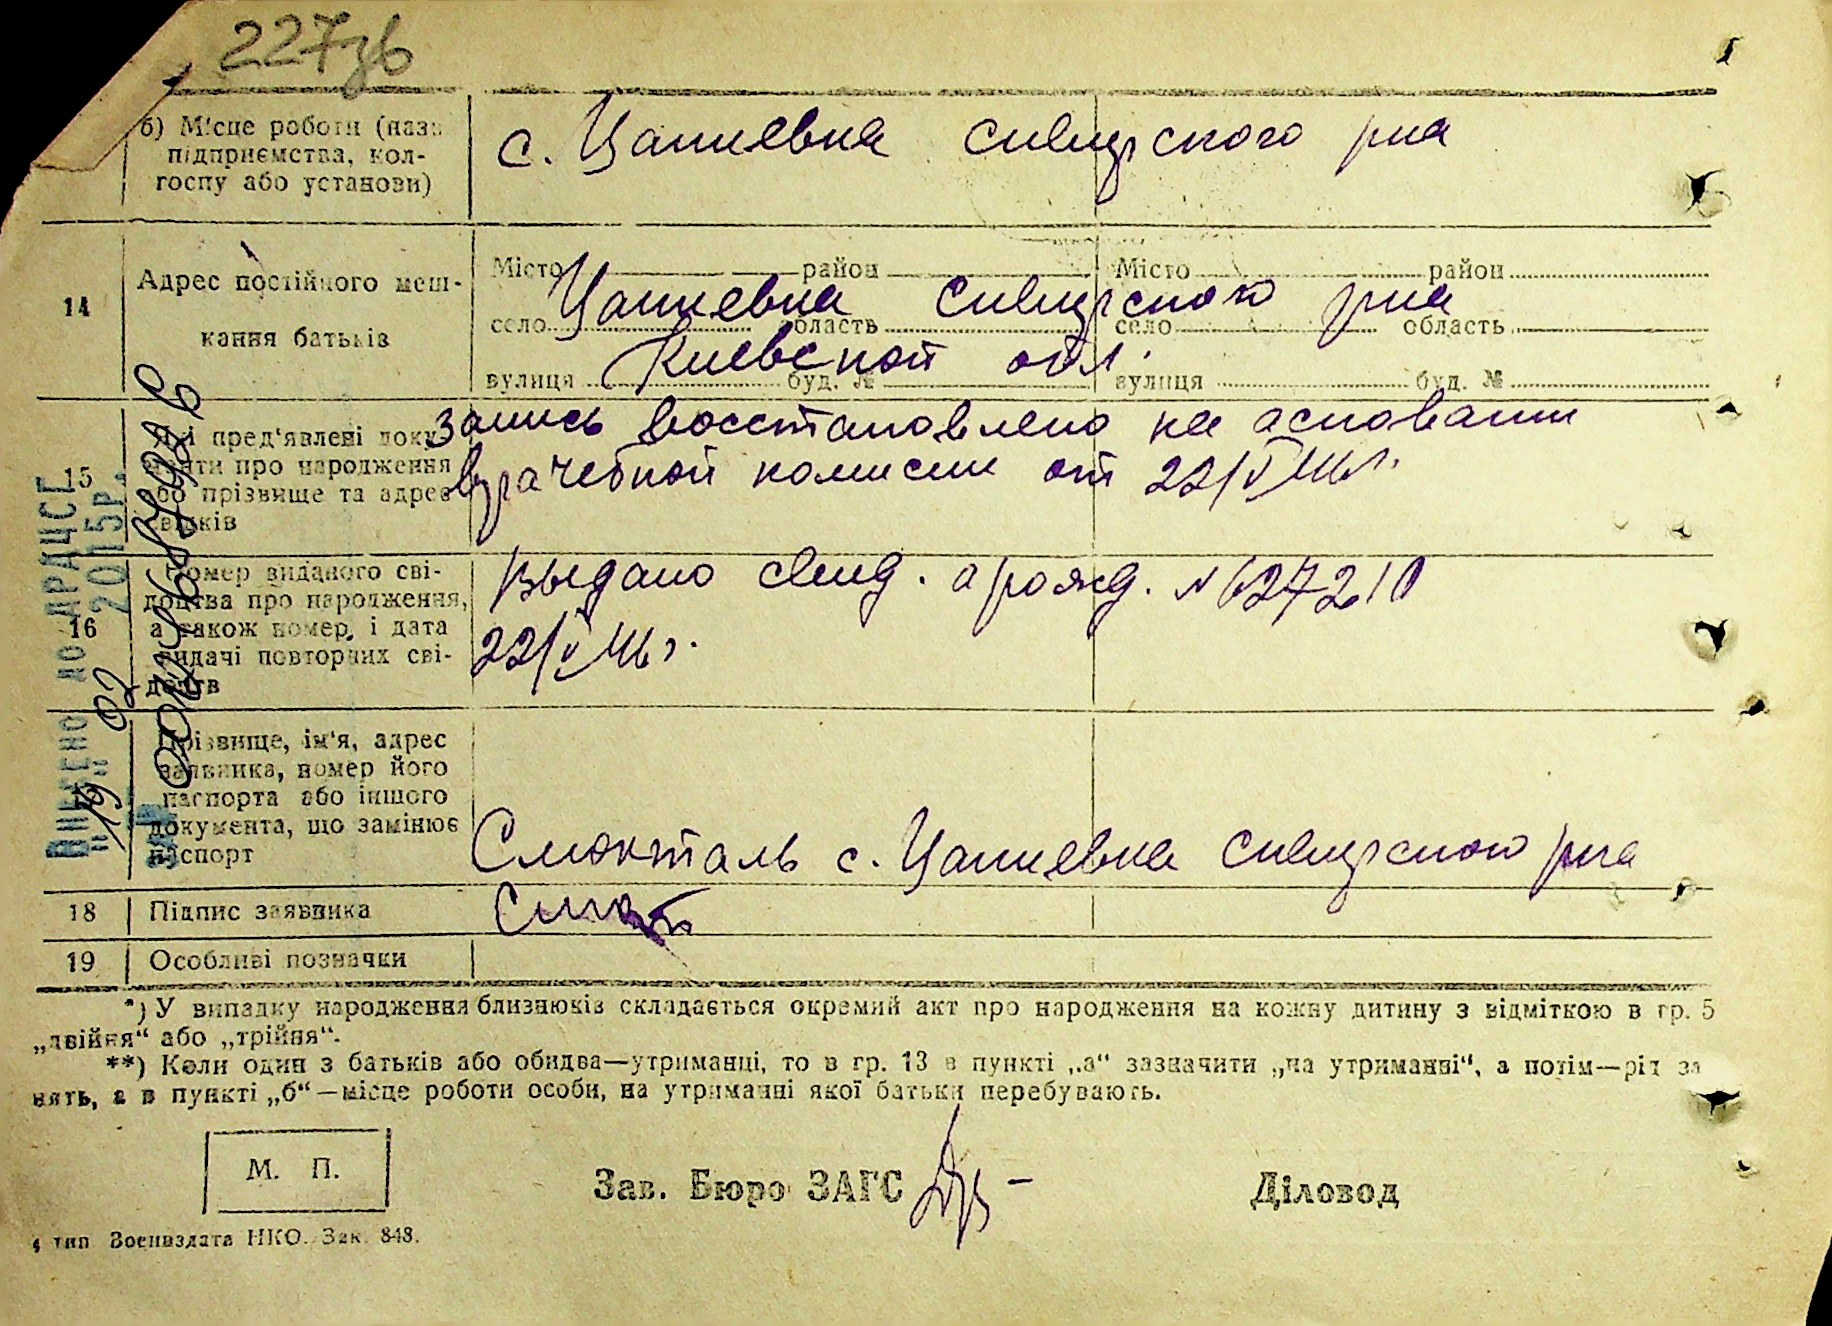 227зв
б) Місце роботи (назва
підприємства, кол-
госпу або установи)
с. Цапиевка сквирского р-на
14
Адрес постійного меш-
кання батьків
Місто район Місто район
Цапиевка сквирского р-на
село область село область
Киевской обл.
вулиця буд. № вулиця буд. №
15
Які пред'явлені доку-
менти про народження
або прізвище та адрес
свідків
запись восстановлено на аснован
врачебной комисии от 22/V 46 г.
16
Номер виданого сві-
доцтва про народження,
а також номер і дата
видачі повторних сві-
доцтв
Выдано свид. а рожд. №
22/V 46 г.
Прізвище, ім'я, адрес
заявника, номер його
паспорта або іншого
документа, що замінює
паспорт
с. Цапиевка сквирского р-на
18 Підпис заявника
19 Особливі позначки
ВНЕСЕНО ДО ДРАЦСГ
"19" 02 2015р.
*) У випадку народження близнюків складається окремий акт про народження на кожну дитину з відміткою в гр. 5
„двійня“ або „трійня“.
**) Коли один з батьків або обидва—утриманці, то в гр. 13 в пункті „а“ зазначити „на утриманні“, а потім—рід за
нять, а в пункті „б“—місце роботи особи, на утриманні якої батьки перебувають.
М. П.
Зав. Бюро ЗАГС
Діловод
4 тип Воениздата НКО. Зак. 848.